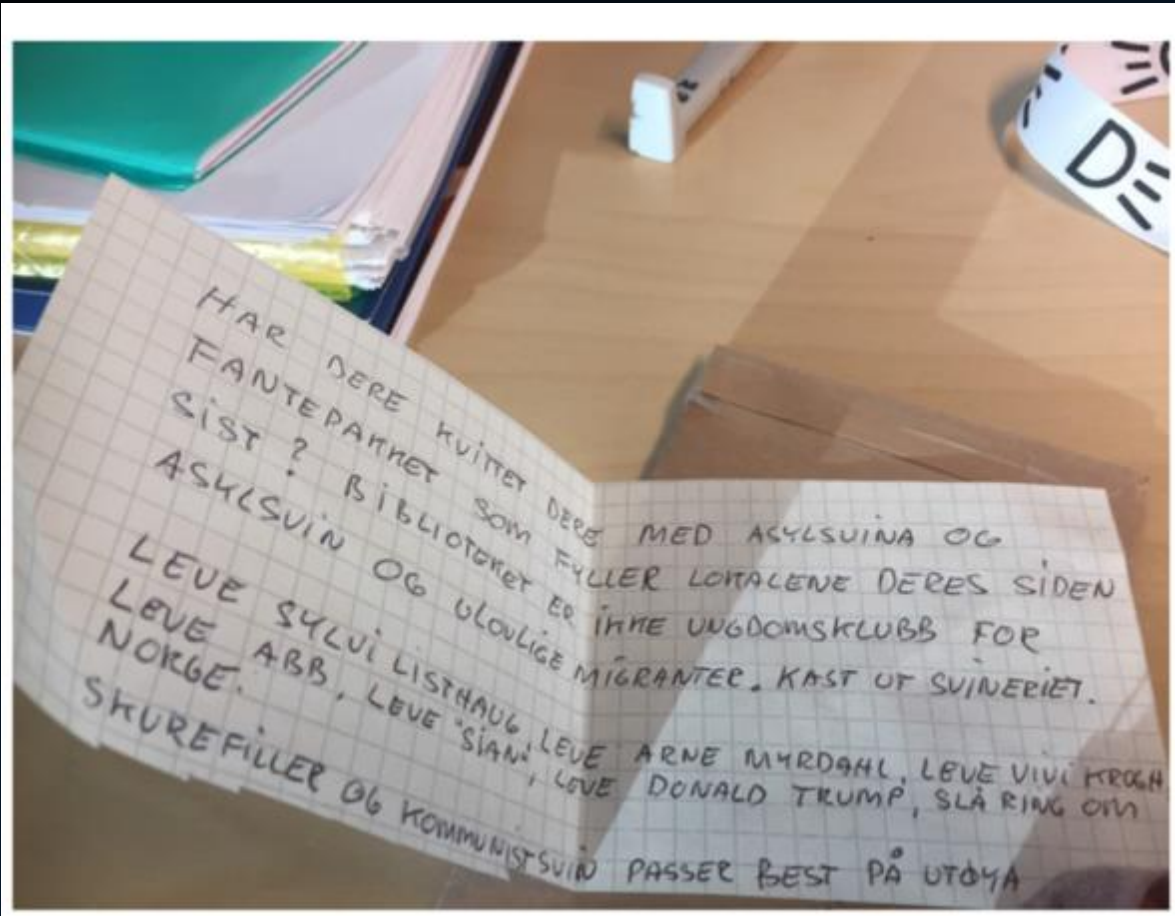 HAR DERE KVITTET DERE MED ASYLSVINA OG
FANTEPAKKET SOM FYLLER LOKALENE DERES SIDEN
SIST? BIBLIOTEKET ER IKKE UNGDOMSKLUBB FOR
ASYLSVIN OG ULOVLIGE MIGRANTER. KAST UT SVINERIET.
LEVE SYLVI LISTHAUG, LEVE ARNE MYRDAHL, LEVE VIVI KROGH
LEVE ABB, LEVE "SIAN", LEVE DONALD TRUMP, SLÅ RING OM
NORGE.
SKUREFILLER OG KOMMUNISTSVIN PASSER BEST PÅ UTØYA